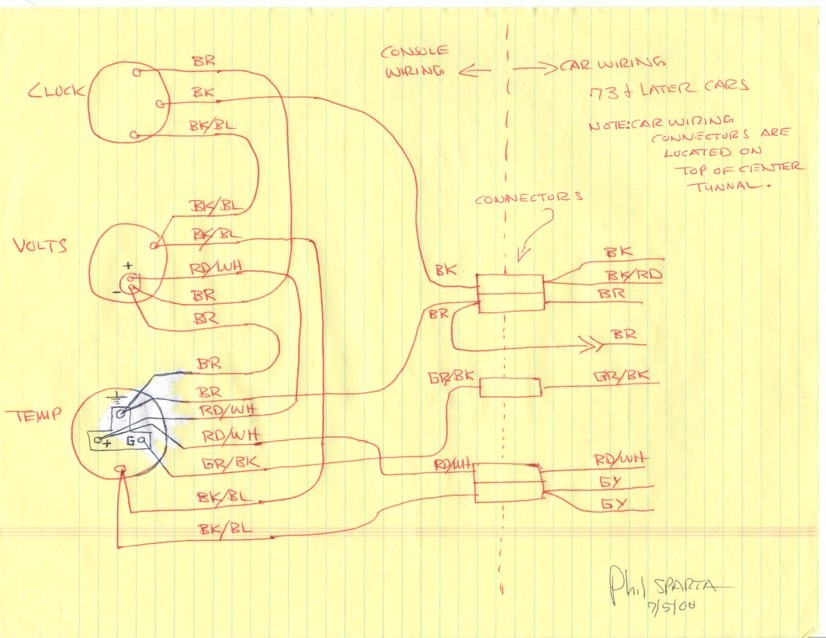 CONSOLE
WIRING
CAR WIRING
73 & LATER CARS
NOTE: CAR WIRING
CONNECTORS ARE
LOCATED ON
TOP OF CENTER
TUNNAL.
CLOCK
BR
BK
BK/BL
CONNECTORS
VOLTS
BK/BL
BK/BL
RD/WH
BR
BR
+
-
BK
BR
BK
BK/RD
BR
BR
TEMP
BR
BR
RD/WH
RD/WH
GR/BK
BK/BL
BK/BL
+
G
GR/BK
GR/BK
RD/WH
RD/WH
GY
GY
Phil SPARTA
7/5/08